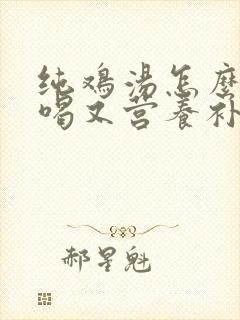 纯鸡汤怎麽
喝又营养补
郝星魁